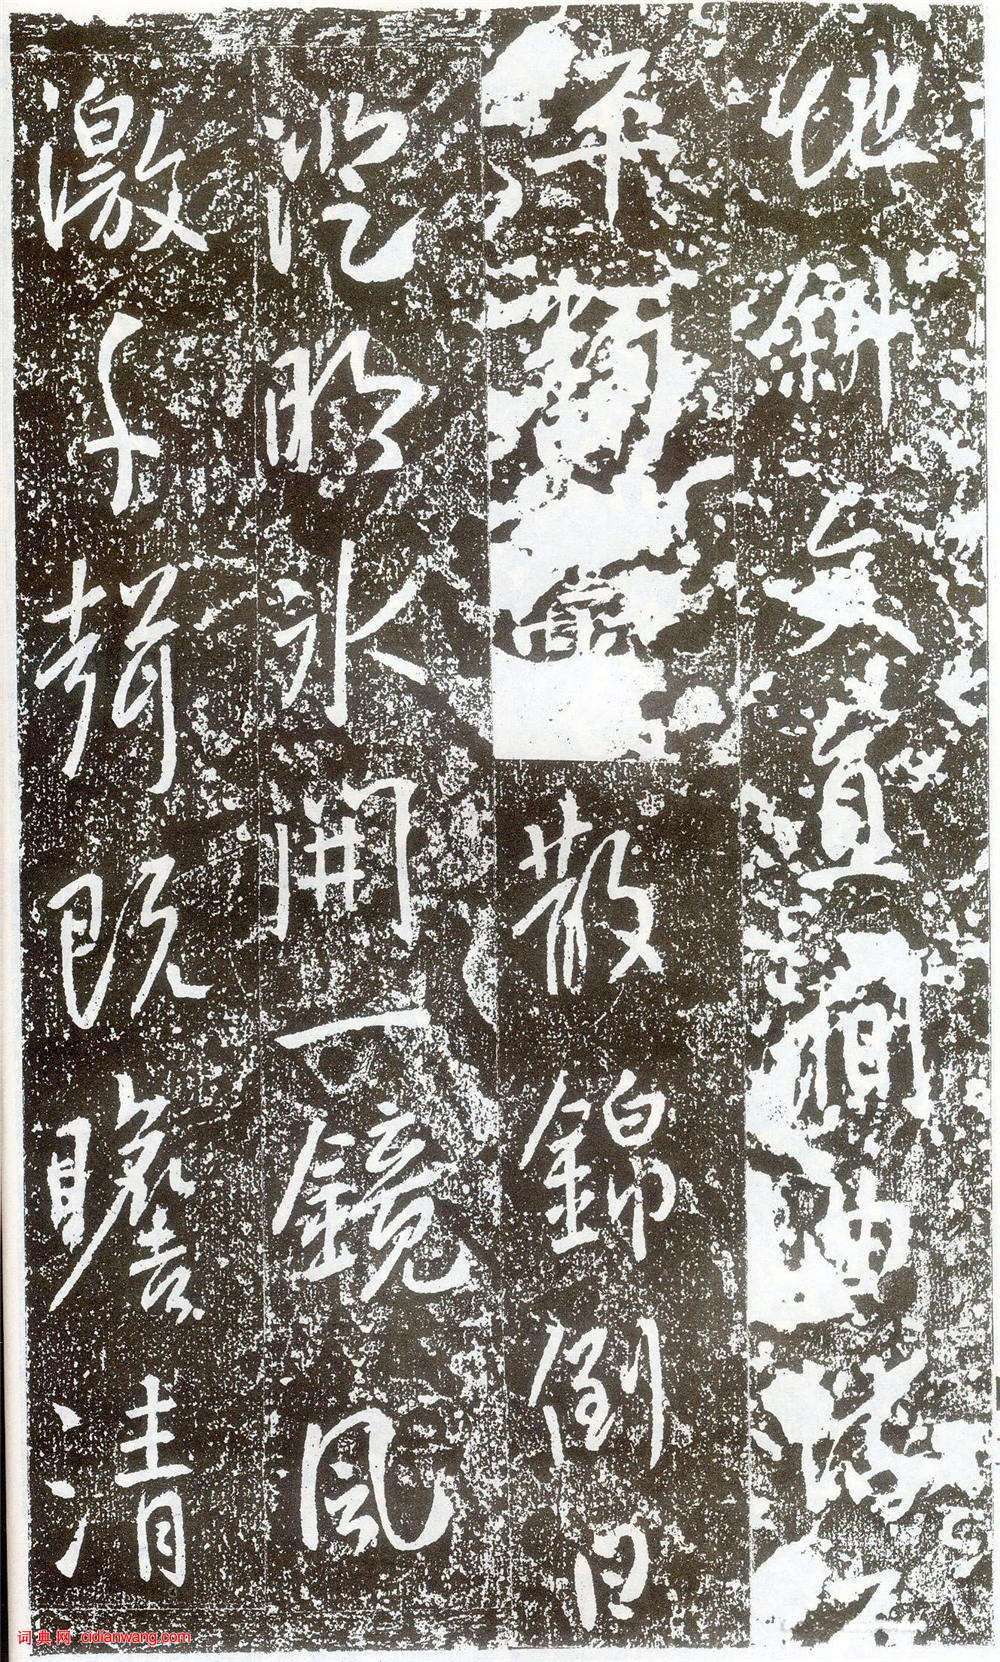 地斜文直澗曲流
平翻霞散錦倒日
澄明冰開一鏡風
激千聲既瞻清
词典网 cidianwang.com